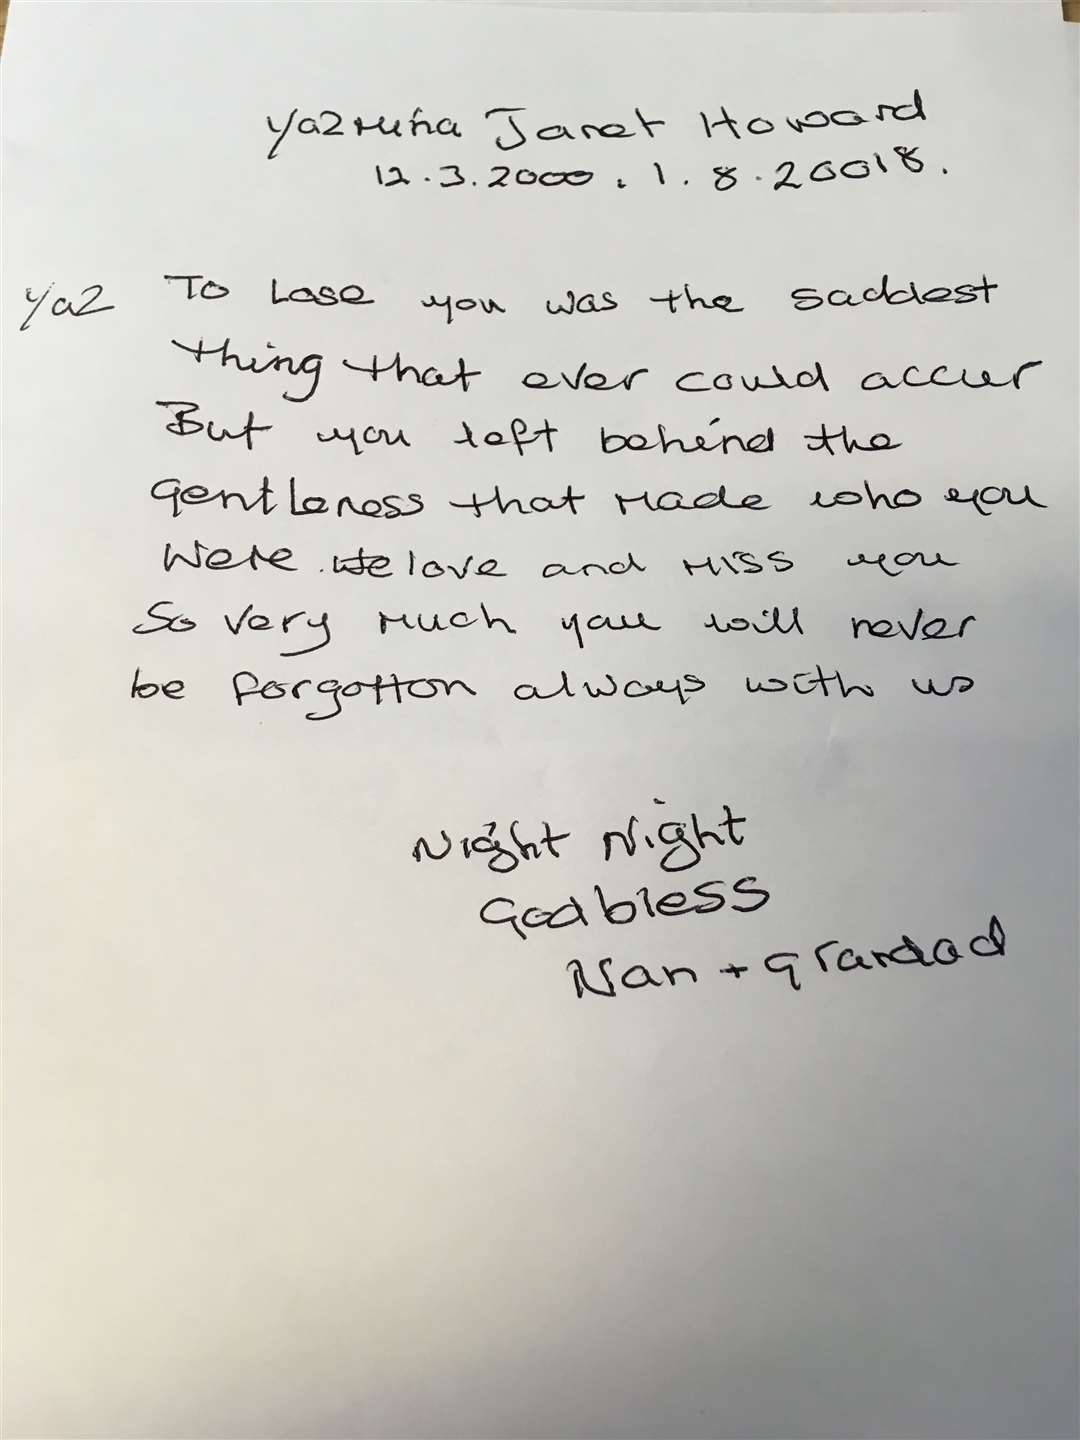 Yazmina Janet Howard
12.3.2000. 1.8.20018.
Yaz To Lose you was the saddest
thing that ever could accur
But you left behind the
gentleness that made who you
were. We love and miss you
So very much you will never
be forgotton always with us
Night Night
God bless
Nan + grandad